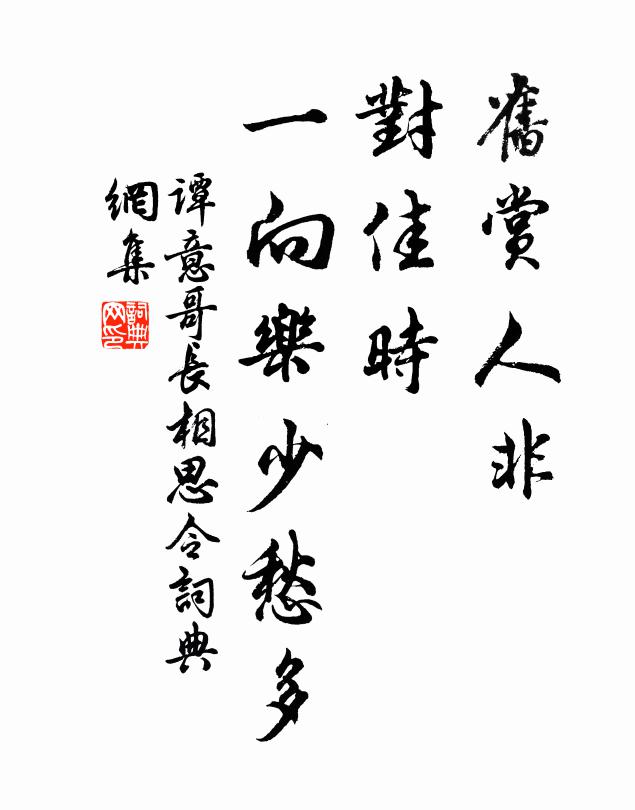 舊賞人非
對佳時
一向樂少愁多
谭意哥長相思令詞典
網集
詞典
网印